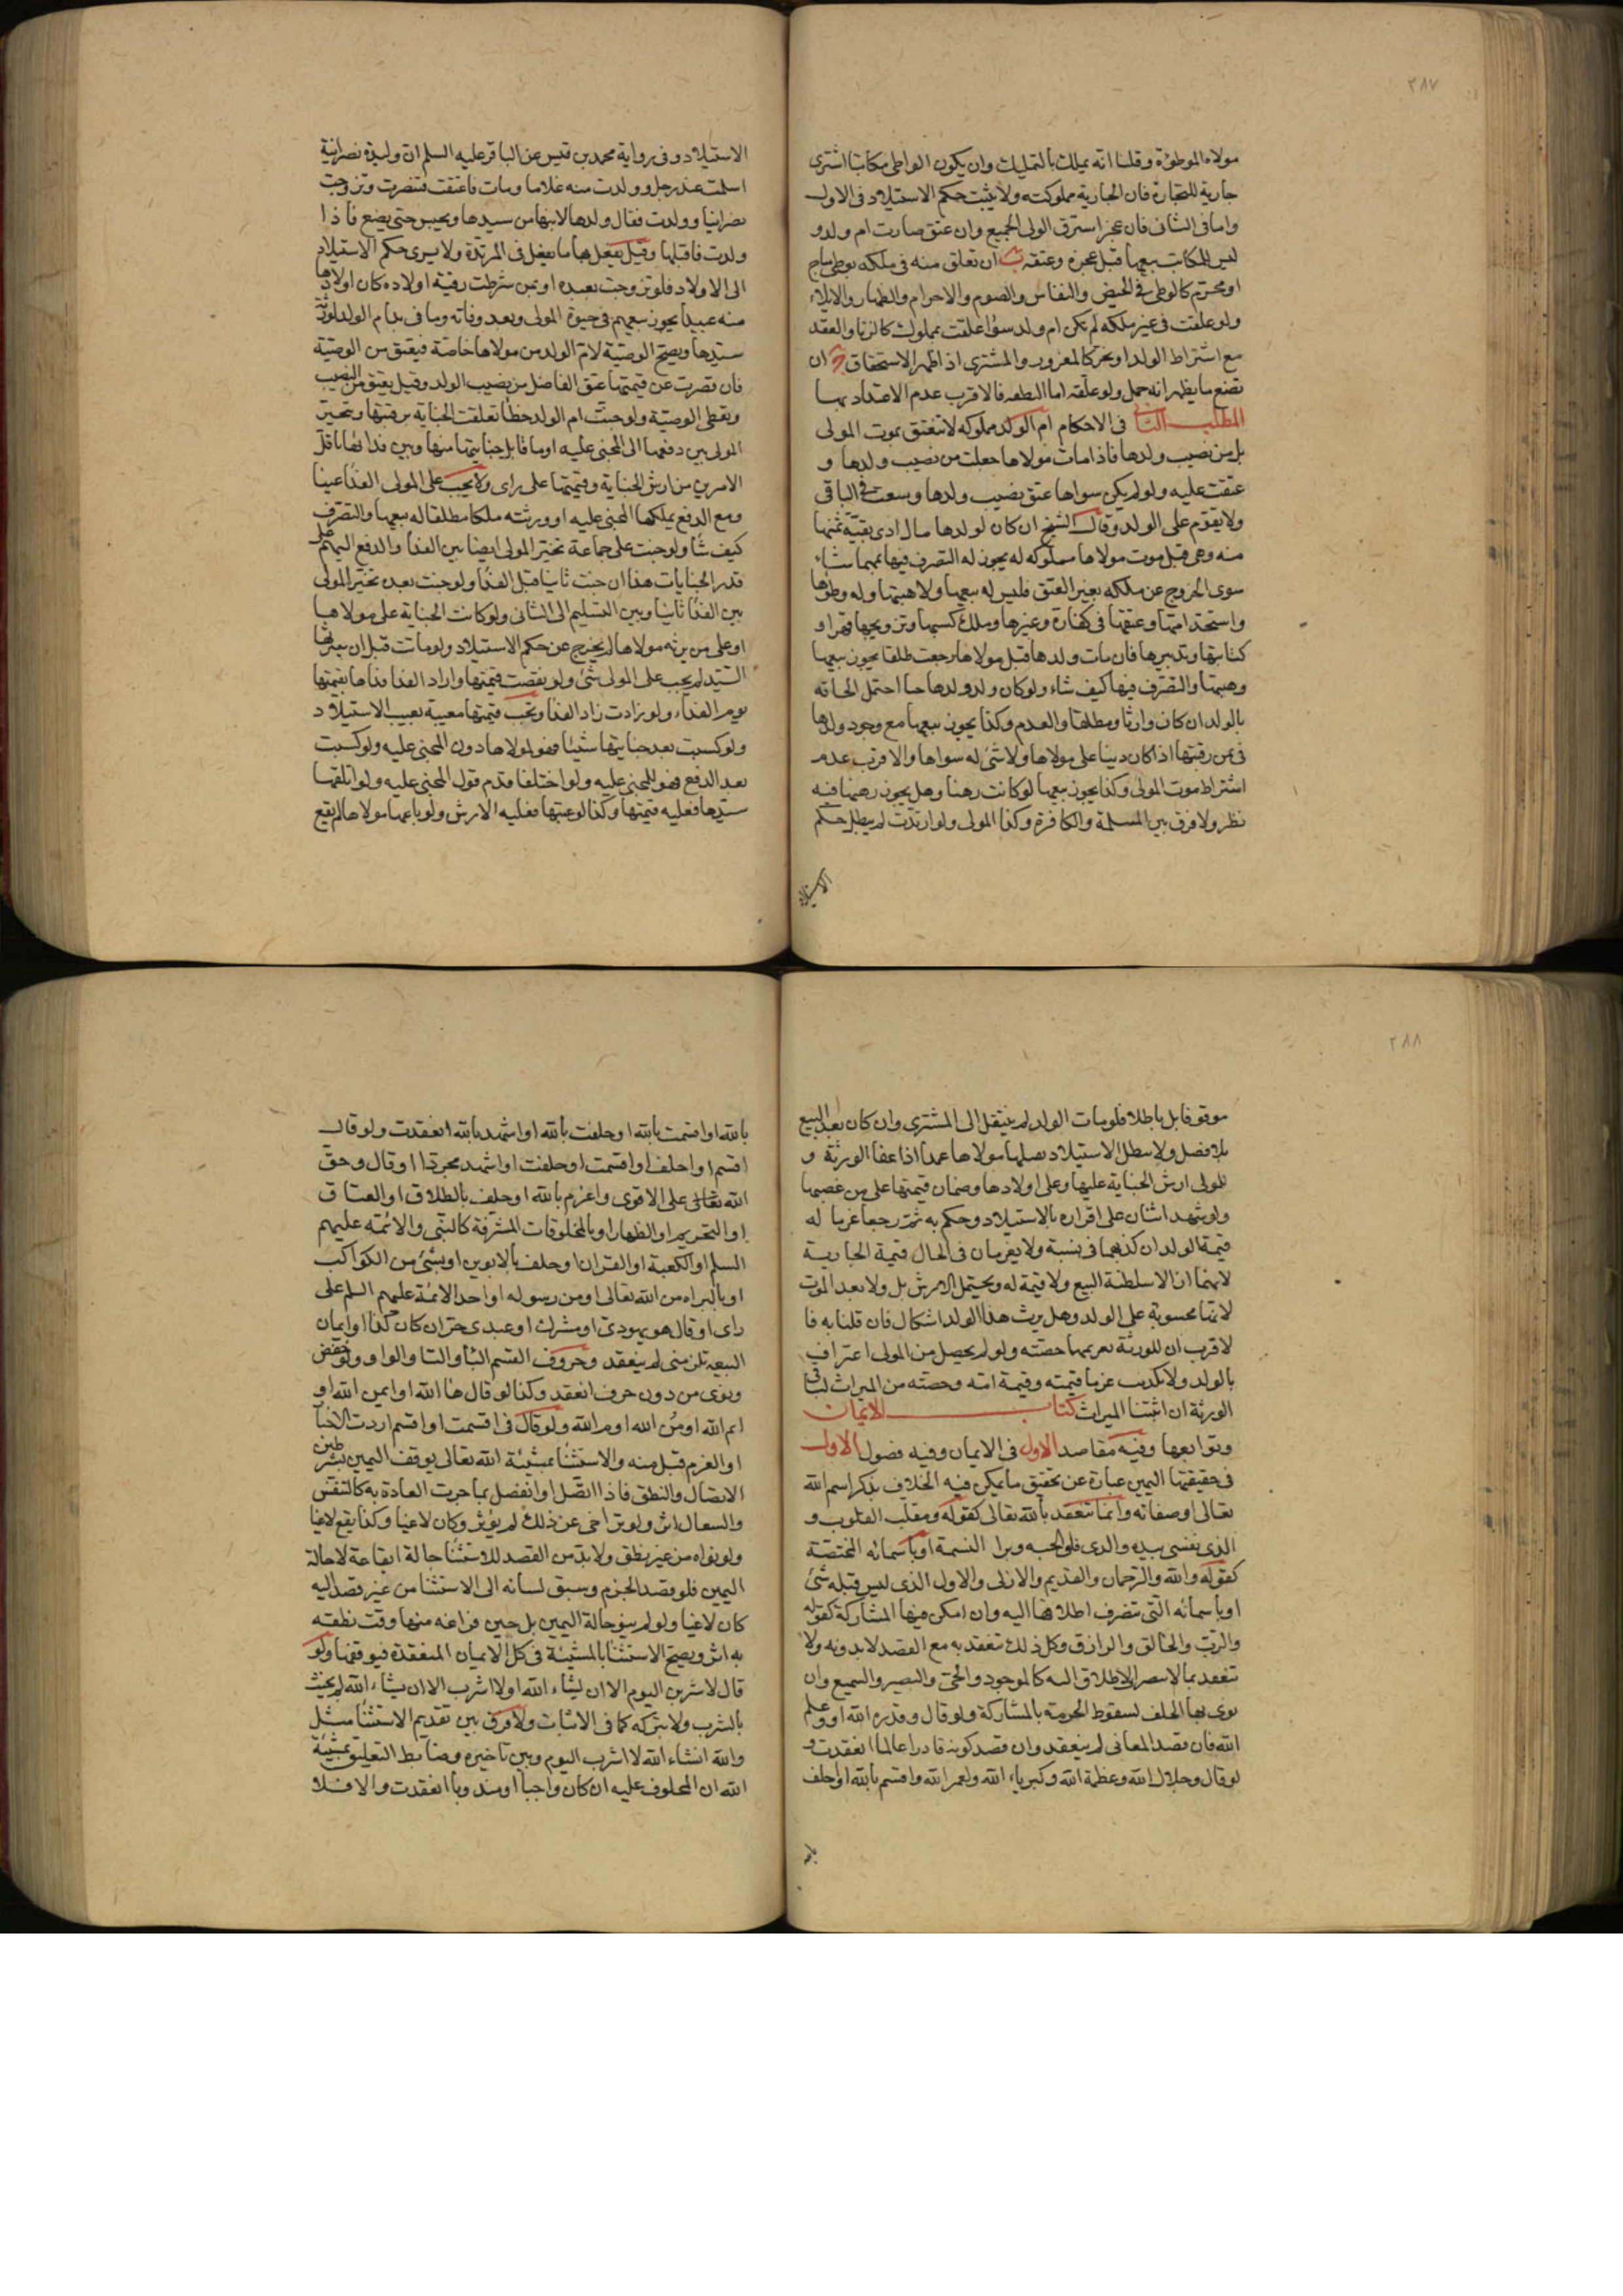 ٢٨٧
مولاه الموطؤة وقلنا انه يملك بالتمليك وان يكون الواطى مكاتبا اشترى
جارية للتجارة فان الجارية مملوكته ولا يثبت حكم الاستيلاد فى الاول
واما فى الثانى فان عجز استرق المولى الجميع وان عتق صارت ام ولد و
ليس للمكاتب بيعها قبل عجزه وعتقه ان تعلق منه فى ملكه بوطى مباح
او محرم كالوطى فى الحيض والنفاس والصوم والاحرام والظهار والايلاء
ولو علقت فى غير ملكه لم تكن ام ولد سواء علقت بمملوك كالزنا والعقد
مع اشتراط الولد او بحر كالمغرور والمشترى اذا ظهر الاستحقاق ان
تضع ما يظهر انه حمل ولو علقه اما النطفه فالاقرب عدم الاعتداد بها
المطلب الثانى فى الاحكام ام الولد مملوكه لا تنعتق بموت المولى
بل من نصيب ولدها فاذا مات مولاها جعلت من نصيب ولدها و
عتقت عليه ولو لم يكن سواها عتق نصيب ولدها وسعت فى الباقى
ولا يقوم على الولد وقال الشيخ ان كان لولدها مال ادى بقية ثمنها
منه وهى قبل موت مولاها مملوكه له يجوز له التصرف فيها بمهما شاء
سوى الخروج عن ملكه بغير العتق فليس له بيعها ولا هبتها وله وطؤها
واستخدامها وعتقها فى كفارة وغيرها وملك كسبها وتزويجها قهرا و
كتابتها وتدبيرها فان مات ولدها قبل مولاها رجعت طلقا يجوز بيعها
وهبتها والتصرف فيها كيف شاء ولو كان ولد ولدها حيا احتمل الحاقه
بالولد ان كان وارثا ومطلقا والعدم وكذا يجوز بيعها مع وجود ولدها
فى ثمن رقبتها اذا كان دينا على مولاها ولا شئ له سواها والاقرب عدم
اشتراط موت المولى وكذا يجوز بيعها لو كانت رهنا وهل يجوز رهنها فيه
نظر ولا فرق بين المسلمة والكافرة وكذا المولى ولو ارتدت لم يبطل حكم
الاستيلاد
الاستيلاد وفى رواية محمد بن قيس عن الباقر عليه السلم ان وليدة نصرانية
اسلمت عند رجل وولدت منه غلاما ومات فاعتقت فتنصرت وتزوجت
نصرانيا وولدت فقال ولدها لابنها من سيدها ويحبس حتى يضع فاذا
ولدت فاقتلها وقيل يفعل بها ما يفعل فى المرتدة ولا يسرى حكم الاستيلاد
الى الاولاد فلو تزوجت بعبده او بمن شرطت رقية اولاده كان اولادها
منه عبيدا يجوز بيعهم فى حيوة المولى وبعد وفاته وما فى يد ام الولد لورثة
سيدها ويصح الوصية لام الولد من مولاها خاصة فيعتق من الوصية
فان قصرت عن قيمتها عتق الفاضل من نصيب الولد وقيل يعتق من النصيب
ويعطى الوصية ولو جنت ام الولد خطأ تعلقت الجناية برقبتها ويتخير
المولى بين دفعها الى المجنى عليه او ما قابل جنايتها منها وبين فدائها باقل
الامرين من ارش الجناية وقيمتها على راى ولا يجب على المولى الفدا عينا
ومع الدفع يملكها المجنى عليه او ورثته ملكا مطلقا له بيعها والتصرف
كيف شا ولو جنت على جماعة تخير المولى ايضا بين الفدا والدفع اليهم على
قدر الجنايات هذا ان جنت ثانيا قبل الفدا ولو جنت بعده تخير المولى
بين الفدا ثانيا وبين التسليم الى الثانى ولو كانت الجناية على مولاها
او على من يرثه مولاها لم يخرج عن حكم الاستيلاد ولو ماتت قبل ان يفديها
السيد لم يجب على المولى شئ ولو نقصت قيمتها واراد الفدا فداها بقيمتها
يوم الفداء ولو زادت زاد الفدا وتجب قيمتها معيبة بعيب الاستيلاد
ولو كسبت بعد جنايتها شيئا فهو لمولاها دون المجنى عليه ولو كسبت
بعد الدفع فهو للمجنى عليه ولو اختلفا قدم قول المجنى عليه ولو اتلفها
سيدها فعليه قيمتها وكذا لو عيبها فعليه الارش ولو باعها مولاها لم يقع
٢٨٨
موقوفا بل باطلا فلو مات الولد لم ينتقل الى المشترى وان كان بعد البيع
بلا فصل ولا يبطل الاستيلاد بقتلها مولاها عمدا اذا عفا الورثة و
للمولى ارش الجناية عليها وعلى اولادها وضمان قيمتها على من غصبها
ولو شهد اثنان على اقراره بالاستيلاد وحكم به ثم رجعا غرما له
قيمة الولد ان كذبهما فى نسبه ولا يغرمان فى الحال قيمة الجارية
لانهما ازالا سلطنة البيع ولا قيمة له ويحتمل الارش بل ولا بعد الموت
لانها محسوبة على الولد وهل يرث هذا الولد اشكال فان قلنا به فا
لاقرب ان للورثة تغريمهما حصته ولو لم يحصل من المولى اعتراف
بالولد ولا تكذيب غرما قيمته وقيمة امه وحصته من الميراث لباقى
الورثة ان اثبتنا الميراث كتاب الايمان
وتوابعها وفيه مقاصد الاول فى الايمان وفيه فصول الاول
فى حقيقتها اليمين عبارة عن تحقيق ما يمكن فيه الخلاف بذكر اسم الله
تعالى او صفاته وانما تنعقد بالله تعالى كقوله ومقلب القلوب و
الذى نفسى بيده والذى فلق الحبه وبرا النسمة او باسمائه المختصة
كقوله والله والرحمان والقديم والازلى والاول الذى ليس قبله شئ
او باسمائه التى تنصرف اطلاقها اليه وان امكن فيها المشاركة كقوله
والرب والخالق والرازق وكل ذلك تنعقد به مع القصد لا بدونه ولا
تنعقد بما لا ينصرف الاطلاق اليه كالموجود والحى والبصير والسميع وان
نوى بها الحلف لسقوط الحرمة بالمشاركة ولو قال وقدره الله او وعلم
الله فان قصد المعانى لم ينعقد وان قصد كونه قادرا عالما انعقدت و
لو قال وجلال الله وعظمة الله وكبرياء الله ولعمر الله واقسم بالله او احلف
بالله
بالله او اقسمت بالله او حلفت بالله او اشهد بالله انعقدت ولو قال
اقسم او احلف او اقسمت او حلفت او اشهد مجردا او قال وحق
الله تعالى على الاقوى واعزم بالله او حلف بالطلاق او العتاق
او التحريم او الظهار او بالمخلوقات المشرفة كالنبى والائمة عليهم
السلم او الكعبة او القران او حلف بالابوين او بشئ من الكواكب
او بالبراه من الله تعالى او من رسوله او احد الائمة عليهم السلم على
راى او قال هو يهودى او مشرك او عبدى حر ان كان كذا او ايمان
البيعه تلزمنى لم ينعقد وحروف القسم البا والتا والواو ولو خفض
ونوى من دون حرف انعقد وكذا لو قال ها الله او ايمن الله او
ايم الله او من الله او م الله ولو قال فى اقسمت او اقسم اردت الاخبار
او العزم قبل منه والاستثنا بمشيئة الله تعالى يوقف اليمين بشرطين
الاتصال والنطق فاذا اتصل او انفصل بما جرت العادة به كالتنفس
والسعال اثر ولو تراخى عن ذلك لم يؤثر وكان لاغيا وكذا يقع لاغيا
ولو نواه من غير نطق ولا بد من القصد للاستثنا حالة ايقاعة لا حالة
اليمين فلو قصد الجزم وسبق لسانه الى الاستثنا من غير قصد اليه
كان لاغيا ولو لم ينو حالة اليمين بل حين فراغه منها وقت نطقه
به اثر ويصح الاستثنا بالمشيئة فى كل الايمان المنعقدة فيوقفها ولو
قال لاشربن اليوم الا ان يشاء الله او لا اشرب الا ان يشاء الله لم يحنث
بالشرب ولا بتركه كما فى الاثبات ولا فرق بين تقديم الاستثنا مثل
والله انشاء الله لا اشرب اليوم وبين تاخيره وضابط التعليق بمشيئة
الله ان المحلوف عليه ان كان واجبا او مندوبا انعقدت والا فلا